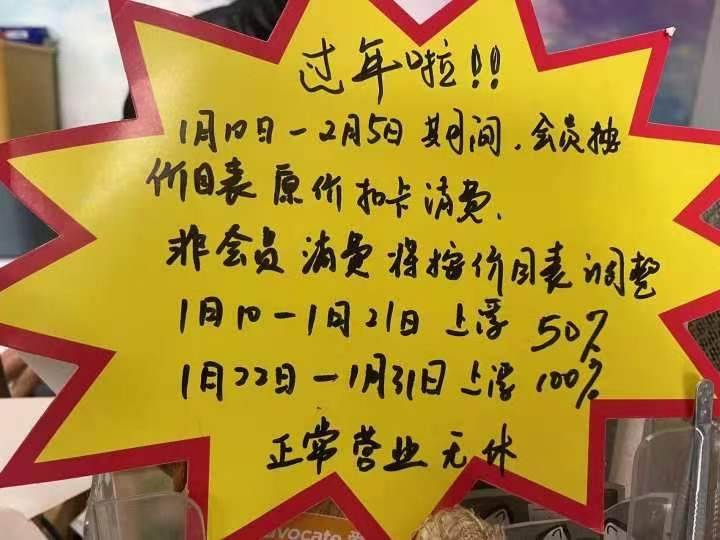 过年啦!!
1月10日-2月5日期间.会员按
价目表原价扣卡消费.
非会员消费将按价目表调整
1月10-1月21日上浮50%
1月22日-1月31日上浮100%
正常营业无休
vocato